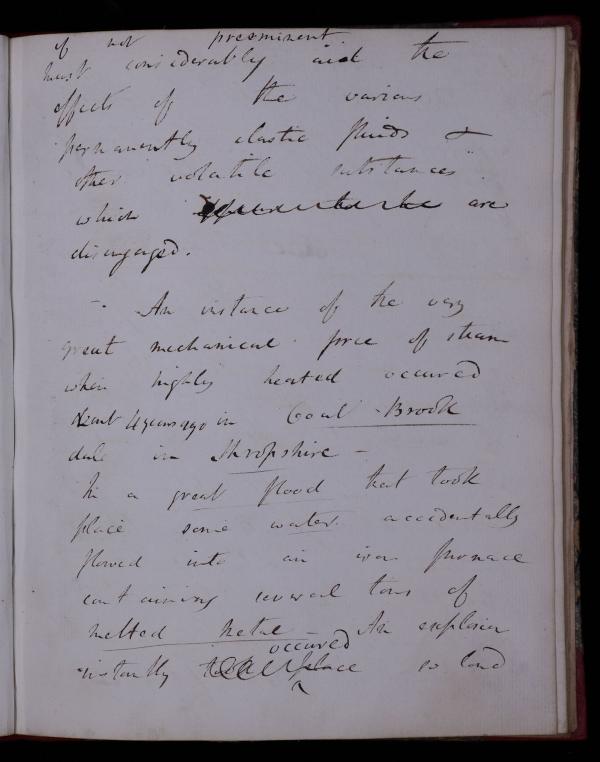 if not preeminent
must considerably aid the
effects of the various
permanently elastic fluids &
other volatile substances
which are
disengaged.
- An instance of the very
great mechanical force of steam
when highly heated occured
about 4 years ago in Coal-Brook
dale in Shropshire -
In a great flood that took
place some water accidentally
flowed into an iron furnace
containing several tons of
melted metal - An explosion
occured
instantly took place so loud